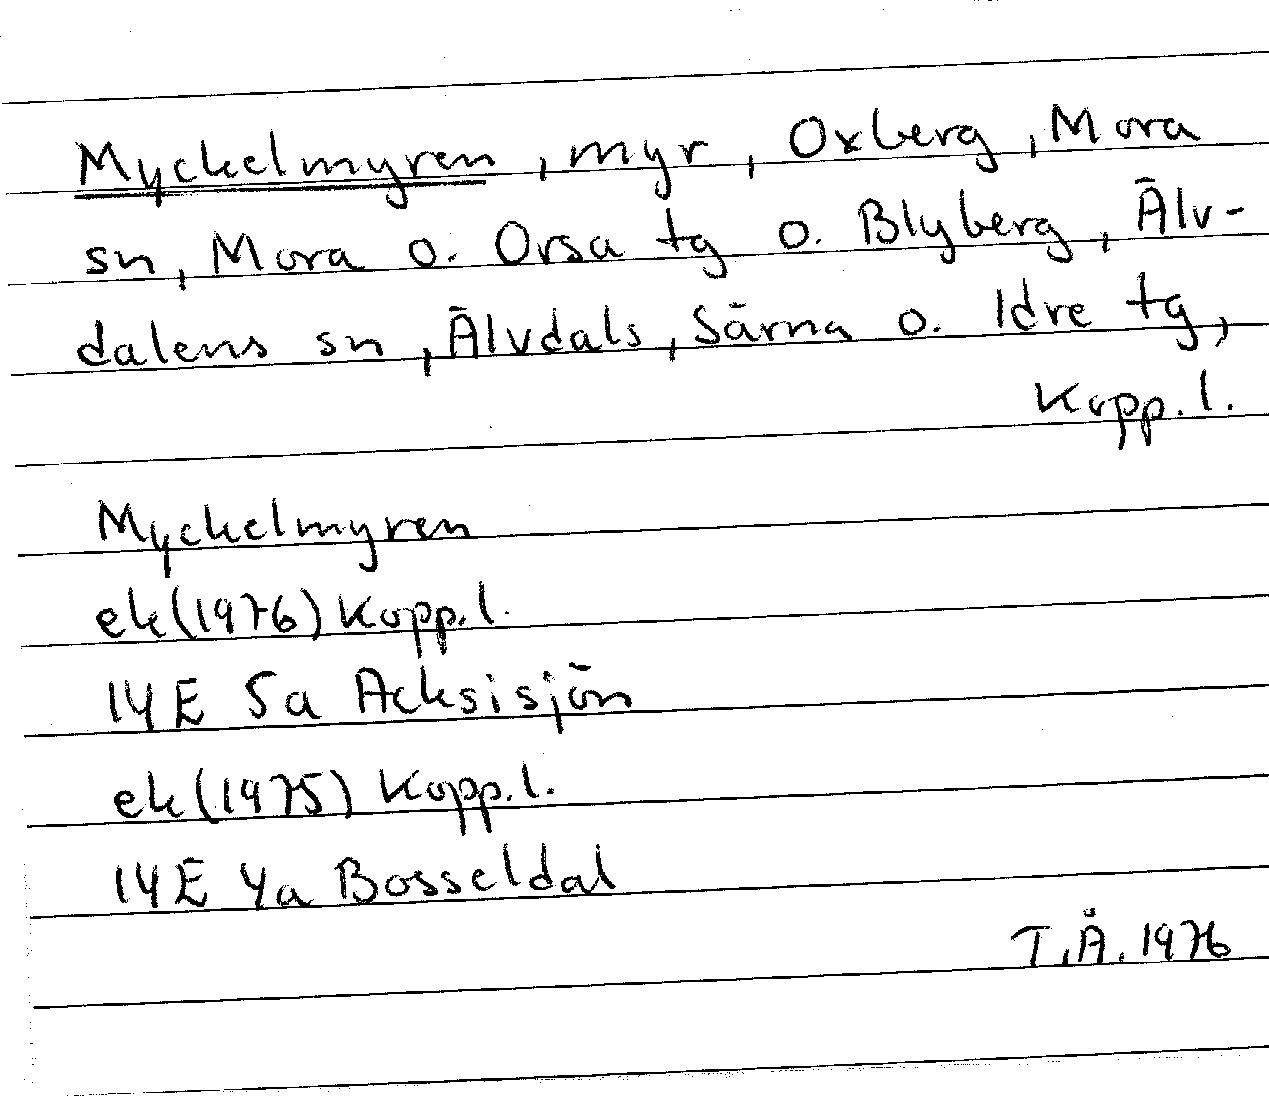 Myckelmyren, myr, Oxberg, Mora
sn, Mora o. Orsa tg o. Blyberg, Älv-
dalens sn, Älvdals, Särna o. Idre tg,
Kopp. l.
Myckelmyren
ek (1976) Kopp. l.
14E 5a Acksisjön
ek (1975) Kopp. l.
14E 4a Bosseldal
T.Å. 1976